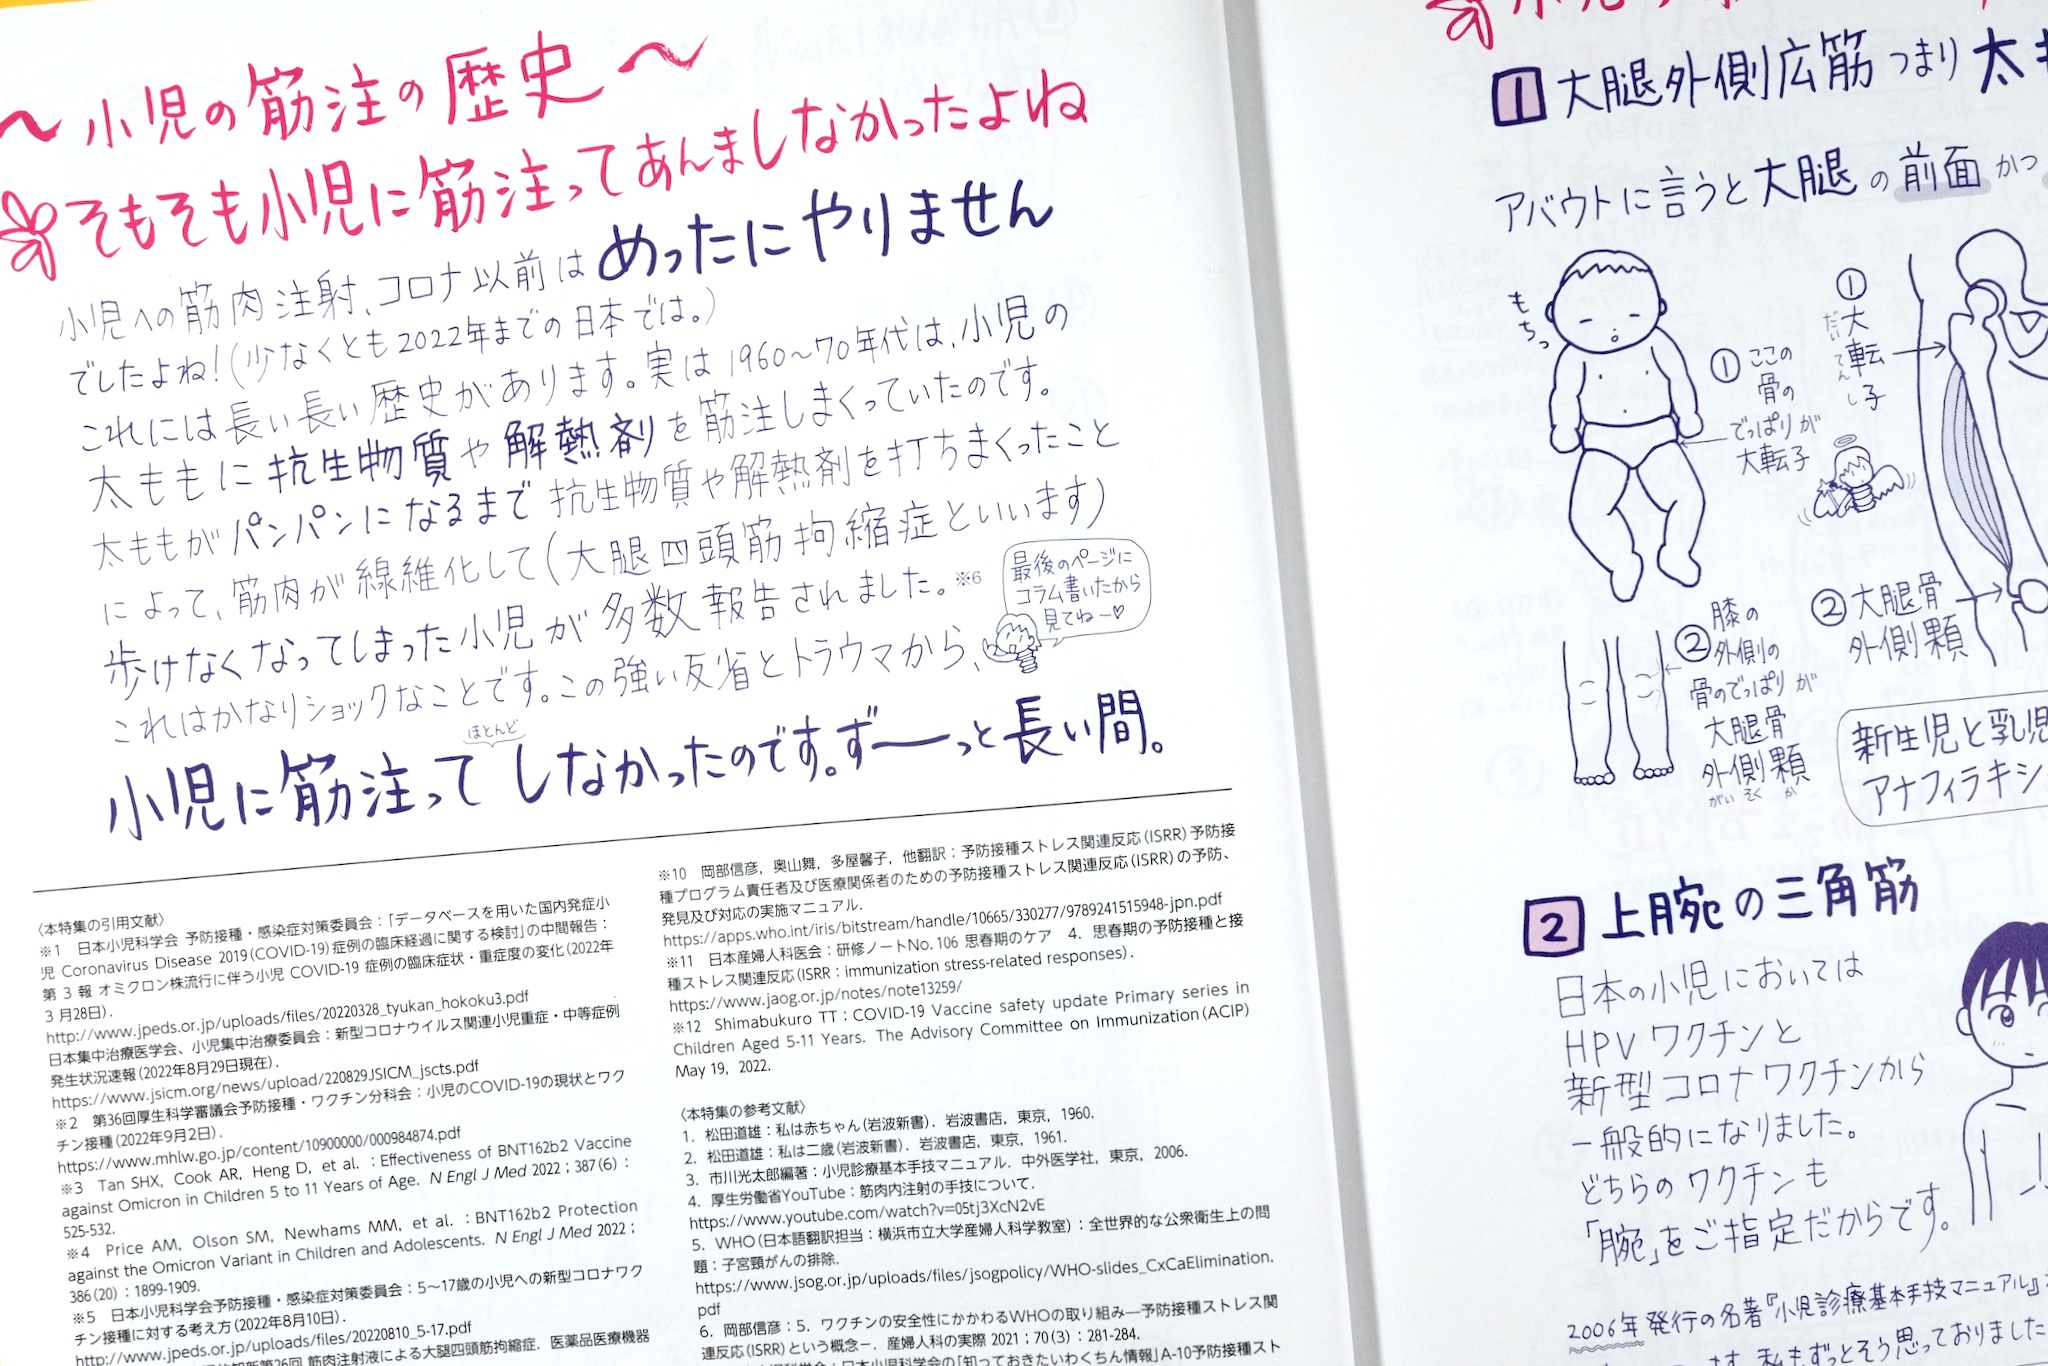 ～小児の筋注の歴史～
そもそも小児に筋注ってあんましなかったよね
小児への筋肉注射、コロナ以前はめったにやりません
でしたよね！(少なくとも2022年までの日本では。)
これには長い長い歴史があります。実は1960～70年代は、小児の
太ももに抗生物質や解熱剤を筋注しまくっていたのです。
太ももがパンパンになるまで抗生物質や解熱剤を打ちまくったこと
によって、筋肉が線維化して(大腿四頭筋拘縮症といいます)
歩けなくなってしまった小児が多数報告されました。※6
これはかなりショックなことです。この強い反省とトラウマから、
最後のページに
コラム書いたから
見てねー♡
ほとんど
小児に筋注ってしなかったのです。ず――っと長い間。
〈本特集の引用文献〉
※1　日本小児科学会 予防接種・感染症対策委員会：「データベースを用いた国内発症小
児 Coronavirus Disease 2019(COVID-19)症例の臨床経過に関する検討」の中間報告：
第 3 報 オミクロン株流行に伴う小児 COVID-19 症例の臨床症状・重症度の変化(2022年
3 月28日)．
http://www.jpeds.or.jp/uploads/files/20220328_tyukan_hokoku3.pdf
日本集中治療医学会、小児集中治療委員会：新型コロナウイルス関連小児重症・中等症例
発生状況速報(2022年8月29日現在)．
https://www.jsicm.org/news/upload/220829JSICM_jscts.pdf
※2　第36回厚生科学審議会予防接種・ワクチン分科会：小児のCOVID-19の現状とワク
チン接種(2022年9月2日)．
https://www.mhlw.go.jp/content/10900000/000984874.pdf
※3　Tan SHX, Cook AR, Heng D, et al. : Effectiveness of BNT162b2 Vaccine
against Omicron in Children 5 to 11 Years of Age. N Engl J Med 2022 ; 387(6) :
525-532.
※4　Price AM, Olson SM, Newhams MM, et al. : BNT162b2 Protection
against the Omicron Variant in Children and Adolescents. N Engl J Med 2022 ;
386(20) : 1899-1909.
※5　日本小児科学会予防接種・感染症対策委員会：5～17歳の小児への新型コロナワク
チン接種に対する考え方(2022年8月10日)．
http://www.jpeds.or.jp/uploads/files/20220810_5-17.pdf
第26回 筋肉注射液による大腿四頭筋拘縮症．医薬品医療機器
※10　岡部信彦，奥山舞，多屋馨子，他翻訳：予防接種ストレス関連反応(ISRR)予防接
種プログラム責任者及び医療関係者のための予防接種ストレス関連反応(ISRR)の予防、
発見及び対応の実施マニュアル．
https://apps.who.int/iris/bitstream/handle/10665/330277/9789241515948-jpn.pdf
※11　日本産婦人科医会：研修ノートNo. 106 思春期のケア　4．思春期の予防接種と接
種ストレス関連反応(ISRR : immunization stress-related responses)．
https://www.jaog.or.jp/notes/note13259/
※12　Shimabukuro TT : COVID-19 Vaccine safety update Primary series in
Children Aged 5-11 Years. The Advisory Committee on Immunization(ACIP)
May 19, 2022.
〈本特集の参考文献〉
1．松田道雄：私は赤ちゃん(岩波新書)．岩波書店，東京，1960．
2．松田道雄：私は二歳(岩波新書)．岩波書店，東京，1961．
3．市川光太郎編著：小児診療基本手技マニュアル．中外医学社，東京，2006．
4．厚生労働省YouTube：筋肉内注射の手技について．
https://www.youtube.com/watch?v=05tj3XcN2vE
5．WHO(日本語翻訳担当：横浜市立大学産婦人科学教室)：全世界的な公衆衛生上の問
題：子宮頸がんの排除．
https://www.jsog.or.jp/uploads/files/jsogpolicy/WHO-slides_CxCaElimination.
pdf
6．岡部信彦：5．ワクチンの安全性にかかわるWHOの取り組み―予防接種ストレス関
連反応(ISRR)という概念－．産婦人科の実際 2021；70(3)：281-284．
日本小児科学会の「知っておきたいわくちん情報」A-10予防接種スト
1 大腿外側広筋 つまり 太も
アバウトに言うと大腿の前面かつ
もちっ
①ここの
骨の
でっぱりが
大転子
①大転子
だいてんし
②膝の
外側の
骨のでっぱりが
大腿骨
外側顆
がいそくか
②大腿骨
外側顆
新生児と乳児
アナフィラキシ
2 上腕の三角筋
日本の小児においては
HPVワクチンと
新型コロナワクチンから
一般的になりました。
どちらのワクチンも
「腕」をご指定だからです。
2006年発行の名著『小児診療基本手技マニュアル』
私もずっとそう思っておりました